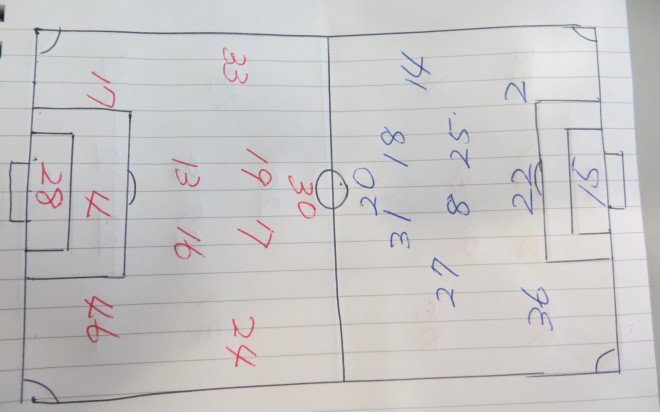 15
2 22 36
25 8 27
14 18 31
20
30
33 19 7 24
13 16
17 4 46
28